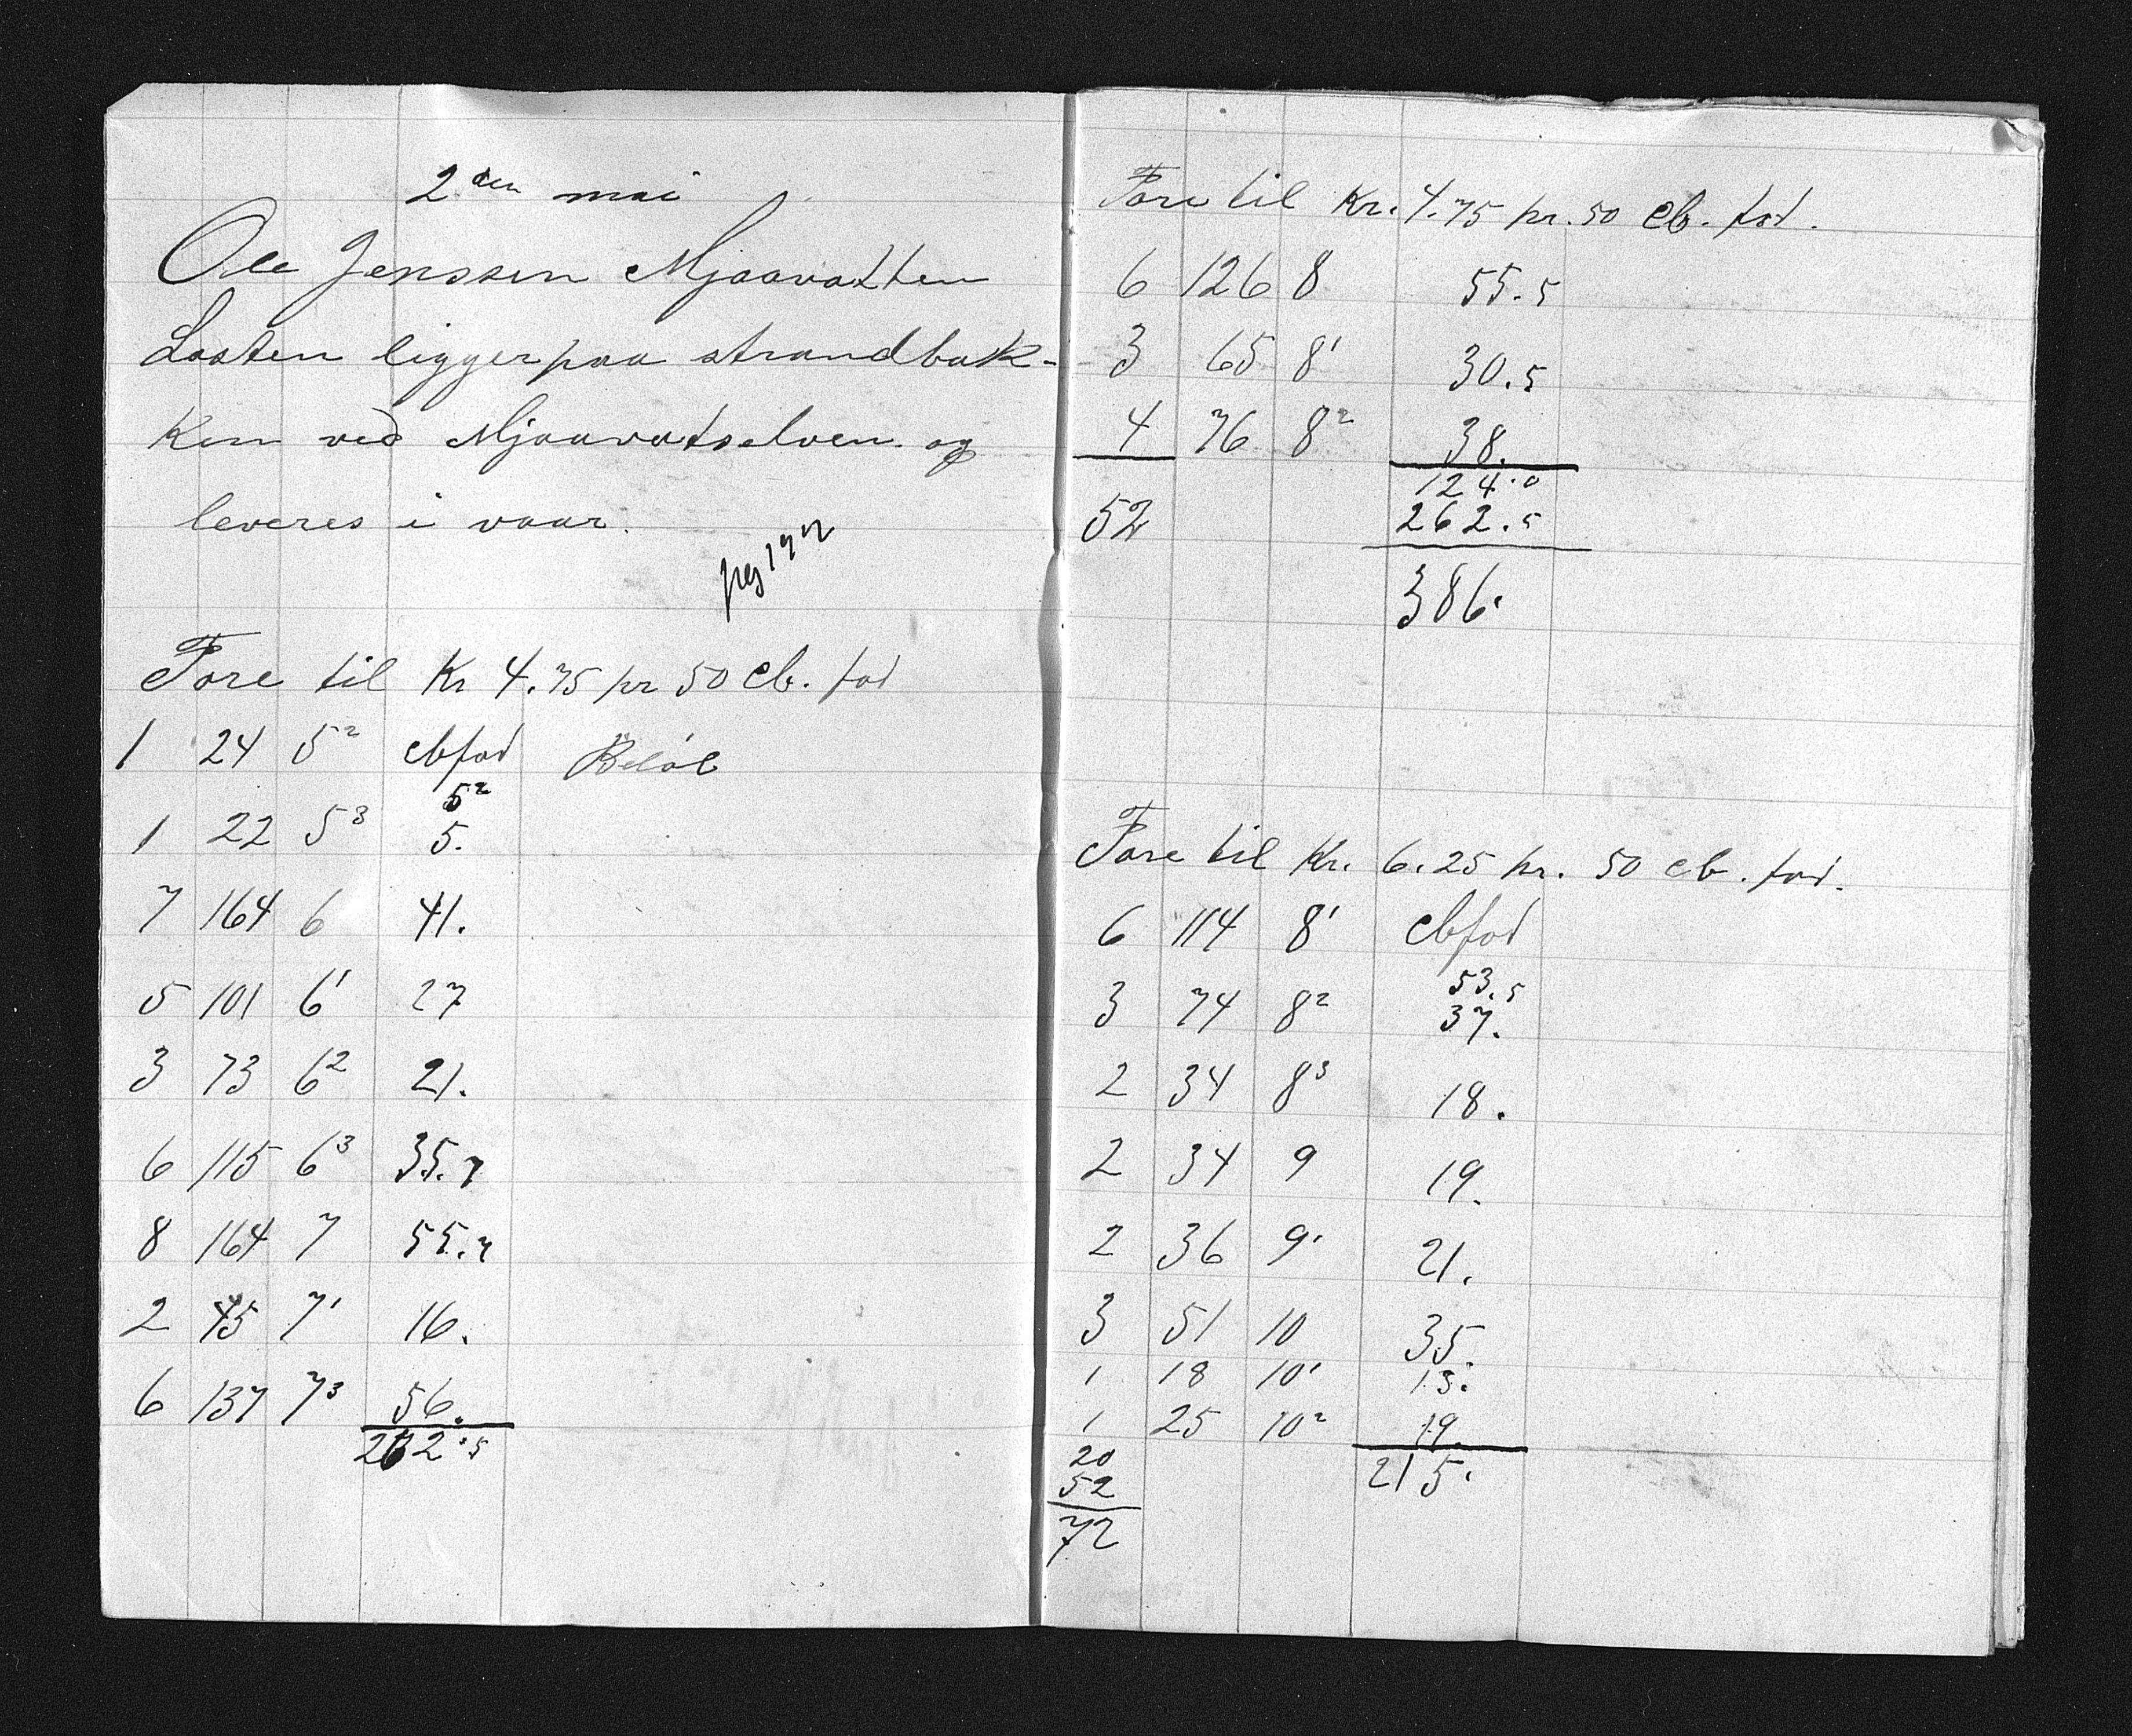 2den mai
Ole Jenssen Mjaavatten
Lasten ligger paa strandbak-
ken ved Mjaavatselven og
leveres i vaar.
Fore til Kr 4.75 pr 50 cb. fod
1 24 5² cbfod Beløb
5²
1 22 5³ 5.
7 164 6 41.
5 101 6' 27
3 73 6² 21.
6 115 6³ 35.7
8 164 7 55.7
2 45 7' 16.
6 137 7³ 56.
262.5
Fore til Kr. 4.75 pr. 50 cb. fod.
6 126 8 55.5
3 65 8' 30.5
4 76 8² 38.
124.0
52 262.5
386.
Fore til Kr. 6.25 pr. 50 cb. fod.
6 114 8' cbfod
53.5
3 74 8² 37.
2 34 8³ 18.
2 34 9 19.
2 36 9' 21.
3 51 10 35.
1 18 10' 13.
1 25 10² 19.
20 215.
52
72